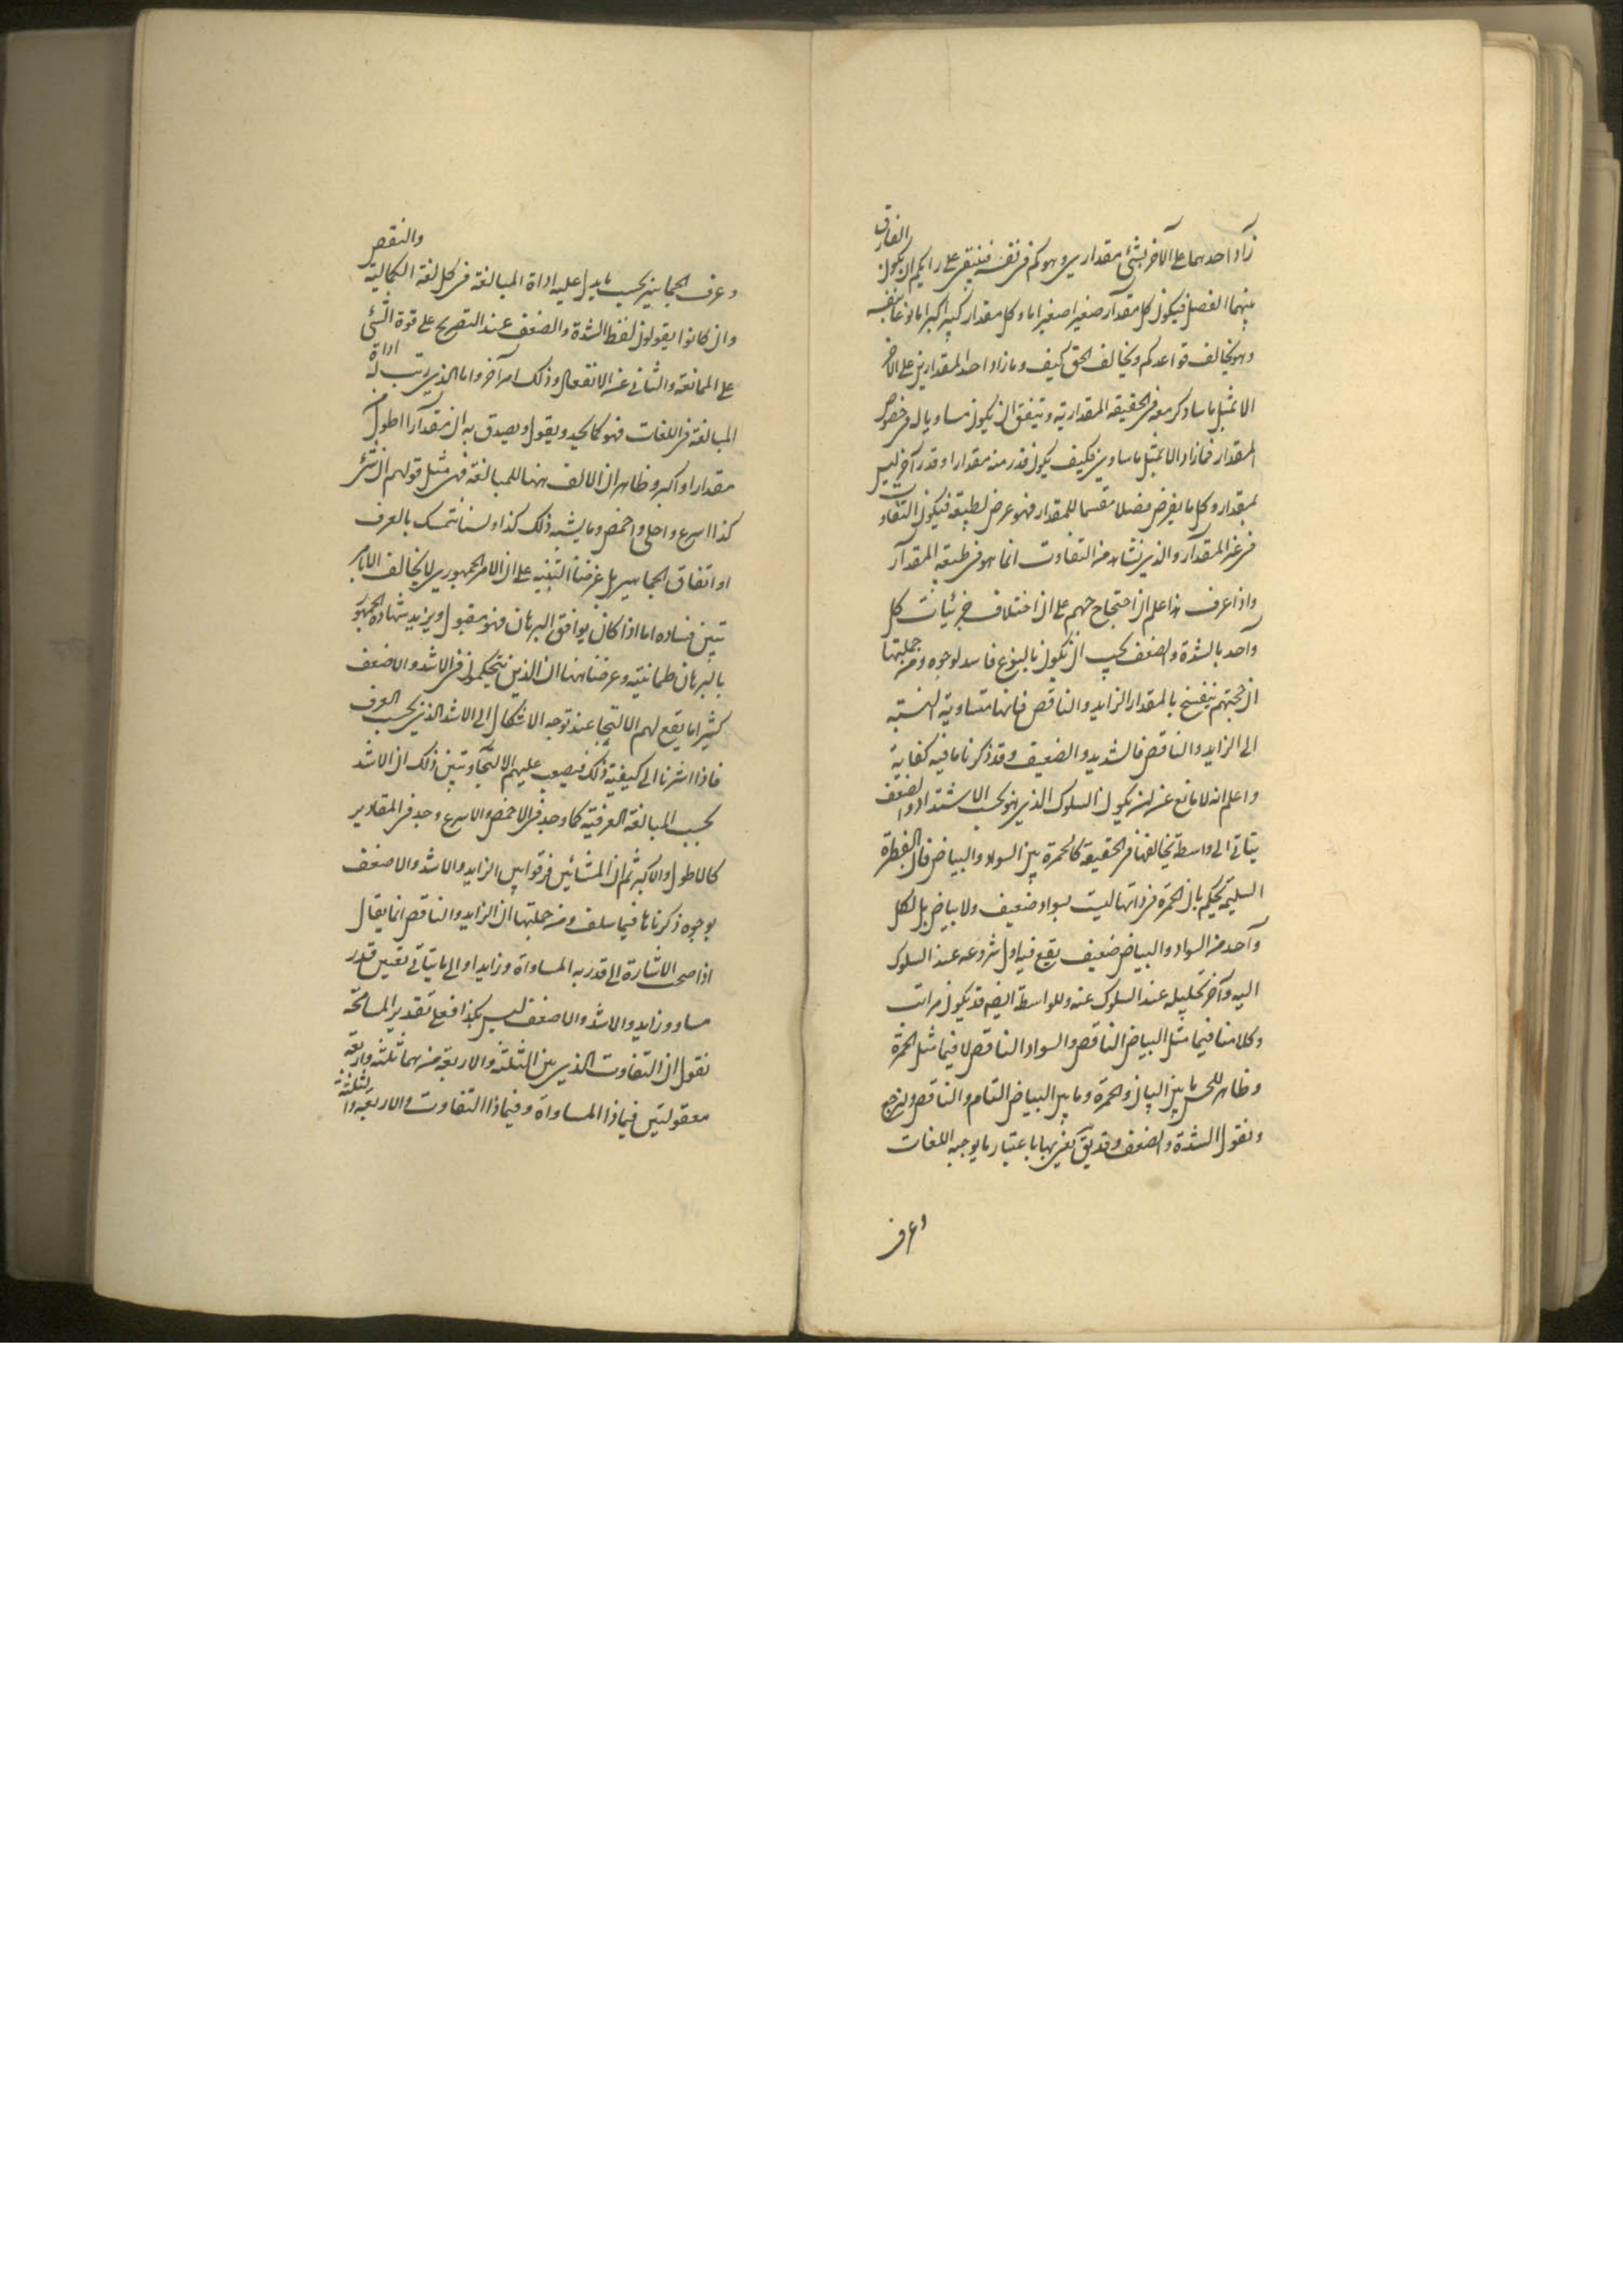 زاد احدهما على الآخر بشئ مقداري وهو كم في نفسه فينبغي على رايكم ان يكون الفارق
بينهما الفصل فيكون كل مقدار صغير اصغر اما وكل مقدار كبير اكبر اما نوعا بنفسه
وهو يخالف قواعدكم ويخالف الحق كيف وما زاد احد المقدارين على الآخر
الا بمثل ما ساوكر معه في الحقيقة المقدارية ويتفق ان يكون مساويا له في خصوص
المقدار فما زاد الا بمثل ما ساوى فكيف يكون قدر منه مقدارا وقدر آخر ليس
بمقدار وكل ما يفرض فصلا مقسما للمقدار فهو عرض لطبيعته فيكون التفاوت
في غير المقدار والذي نشاهد من التفاوت انما هو في طبيعة المقدار
واذا عرف هذا علم ان احتجاجهم على ان اختلاف جزئيات كل
واحد بالشدة والضعف يجب ان يكون بالنوع فاسد لوجوه ومن جملتها
ان حجتهم ينفسخ بالمقدار الزايد والناقص فانها متساوية النسبة
الى الزايد والناقص فالشديد والضعيف وقد ذكرنا ما فيه كفاية
واعلم انه لا مانع عن ان يكون السلوك الذي هو بحسب الاشتداد والضعف
يتأتى الى واسطة يخالفهما في الحقيقة كالحمرة بين السواد والبياض فان الفطرة
السليمة يحكم بان الحمرة في ذاتها ليست بسواد ضعيف ولا بياض بل لكل
واحد من السواد والبياض ضعيف يقع في اول شروعه عند السلوك
اليه وآخر تحليله عند السلوك عنه وللواسطة ايضا قد يكون مراتب
وكلامنا فيما مثل البياض الناقص والسواد الناقص لا فيما مثل الحمرة
وظاهر للحس ما بين البياض والحمرة وما بين البياض التام والناقص ولنرجع
ونقول الشدة والضعف وقد يعنى بهما باعتبار ما يوجبه اللغات
وعرف
وعرف الجماهير بحسب ما يدل عليه اداة المبالغة في كل لغة الكمالية والنقص
وان كانوا يقولون لفظ الشدة والضعف عند التصريح على قوة الشئ
على الممانعة والثاني عن الانفعال وذلك امر آخر واما الذي رتب له اداة
المبالغة في اللغات فهو كما نجد ويقول ويصدق به ان مقدارا اطول
مقدارا واكبر وظاهر ان الالف ههنا للمبالغة فهي مثل قولهم ان شئ
كذا اسرع واحلى واحمض وما يشبه ذلك كذا ولسنا نتمسك بالعرف
او اتفاق الجماهير بل غرضنا التنبيه على ان الامر الجمهوري لا يخالف الا بامر
تبين فساده اما اذا كان يوافق البرهان فهو مقبول ويزيد شهادة الجمهور
بالبرهان طمانينة وغرضنا ههنا ان الذين يتحكمون في الاشد والاضعف
كثيرا ما يقع لهم الالتجا عند توجه الاشكال الى الاشد الذي بحسب العرف
فاذا اشرنا الى كيفية ذلك فيصعب عليهم الالتجا وتبين ذلك ان الاشد
بحسب المبالغة العرفية كما وجد في الاحمض والاسرع وجد في المقادير
كالاطول والاكبر ثم ان المشائين فرقوا بين الزايد والاشد والاضعف
بوجوه ذكرناها فيما سلف ومن جملتها ان الزايد والناقص انما يقال
اذا صح الاشارة الى قدر به المساواة وزايد او الى ما يتأتى تعيين قدر
مساو وزايد والاشد والاضعف ليس هكذا فعلى تقدير المسامحة
نقول ان التفاوت الذي بين الثلثة والاربعة من هما ثلثة واربعة
معقولتين فيماذا المساواة وفيماذا التفاوت والاربعة والثلثة